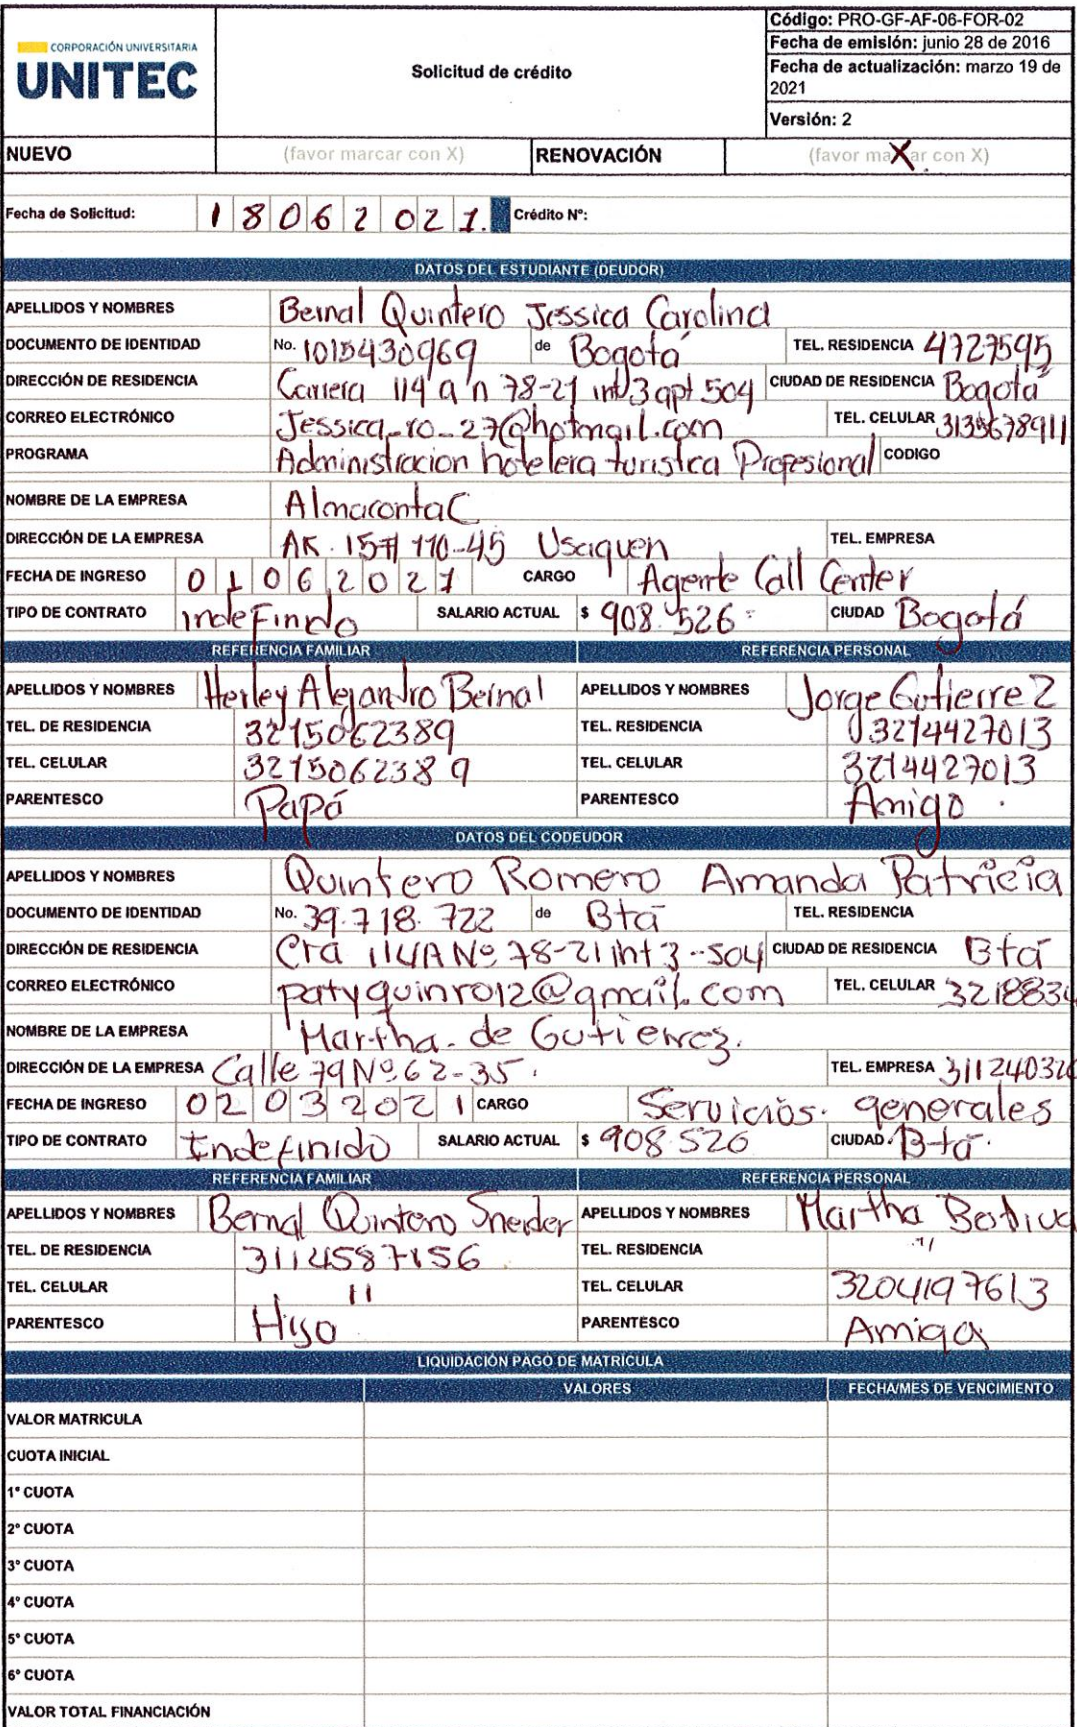 CORPORACIÓN UNIVERSITARIA
UNITEC
Solicitud de crédito
Código: PRO-GF-AF-06-FOR-02
Fecha de emisión: junio 28 de 2016
Fecha de actualización: marzo 19 de
2021
Versión: 2
NUEVO (favor marcar con X) RENOVACIÓN (favor marcar con X) X
Fecha de Solicitud: 18062021. Crédito Nº:
DATOS DEL ESTUDIANTE (DEUDOR)
APELLIDOS Y NOMBRES Bernal Quintero Jessica Carolina
DOCUMENTO DE IDENTIDAD No. 1015430969 de Bogotá TEL. RESIDENCIA 4727595
DIRECCIÓN DE RESIDENCIA Carrera 114 a n 78-21 int 3 apt 504 CIUDAD DE RESIDENCIA Bogotá
CORREO ELECTRÓNICO Jessica_ro_27@hotmail.com TEL. CELULAR
PROGRAMA Administracion hotelera turistica Profesional CODIGO
NOMBRE DE LA EMPRESA AlmacontaC
DIRECCIÓN DE LA EMPRESA AK. 15# 110-45 Usaquen TEL. EMPRESA
FECHA DE INGRESO 01062021 CARGO Agente Call Center
TIPO DE CONTRATO indefinido SALARIO ACTUAL $ 908.526 CIUDAD Bogotá
REFERENCIA FAMILIAR REFERENCIA PERSONAL
APELLIDOS Y NOMBRES Herley Alejandro Bernal APELLIDOS Y NOMBRES Jorge Gutierrez
TEL. DE RESIDENCIA 3215062389 TEL. RESIDENCIA 3214427013
TEL. CELULAR 3215062389 TEL. CELULAR 3214427013
PARENTESCO Papá PARENTESCO Amigo.
DATOS DEL CODEUDOR
APELLIDOS Y NOMBRES Quintero Romero Amanda Patricia
DOCUMENTO DE IDENTIDAD No. 39.718.722 de Bta TEL. RESIDENCIA
DIRECCIÓN DE RESIDENCIA Cra 114A Nº 78-21 int 3-504 CIUDAD DE RESIDENCIA Bta
CORREO ELECTRÓNICO patyquinro12@gmail.com TEL. CELULAR 3218834
NOMBRE DE LA EMPRESA Martha de Gutierrez.
DIRECCIÓN DE LA EMPRESA Calle 79 Nº 62-35. TEL. EMPRESA 311240326
FECHA DE INGRESO 02032021 CARGO Servicios generales
TIPO DE CONTRATO Indefinido SALARIO ACTUAL $ 908.526 CIUDAD Bta.
REFERENCIA FAMILIAR REFERENCIA PERSONAL
APELLIDOS Y NOMBRES Bernal Quintero Sneider APELLIDOS Y NOMBRES Martha
TEL. DE RESIDENCIA 3114587156 TEL. RESIDENCIA "
TEL. CELULAR " TEL. CELULAR 3204197613
PARENTESCO Hijo PARENTESCO Amiga
LIQUIDACIÓN PAGO DE MATRICULA
VALORES FECHA/MES DE VENCIMIENTO
VALOR MATRICULA
CUOTA INICIAL
1° CUOTA
2° CUOTA
3° CUOTA
4° CUOTA
5° CUOTA
6° CUOTA
VALOR TOTAL FINANCIACIÓN